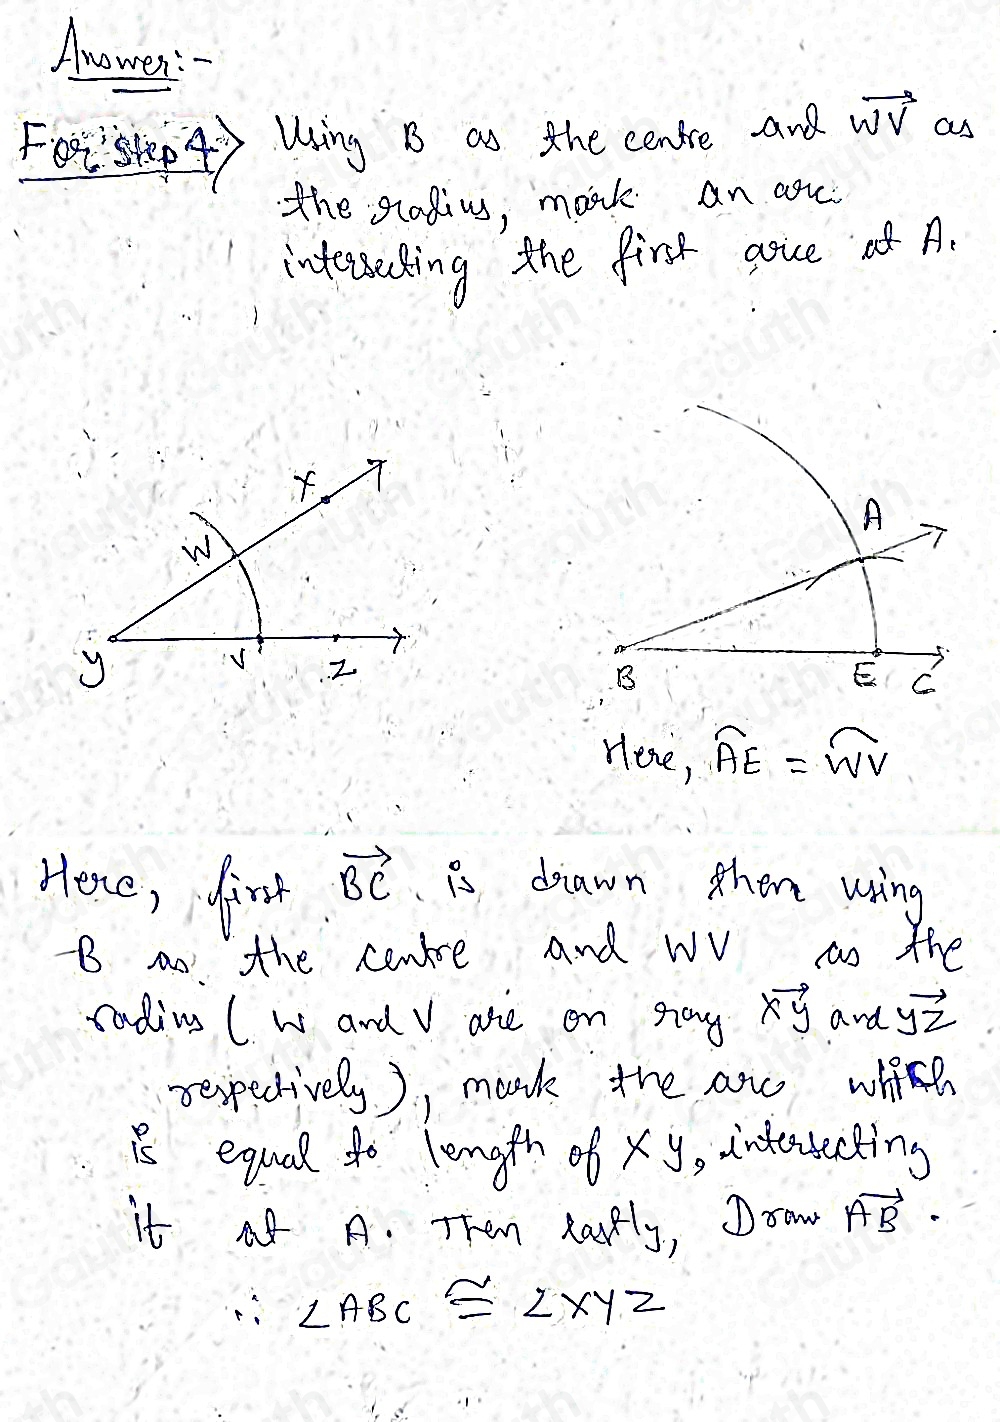 Answer:-
For step 4> Using B as the centre and WV as
the radius, mark an arc
intersecting the first arce at A.
X
W
A
y
V
Z
B
E
C
Here, AE = WV
Here, first BC is drawn then using
B as the centre and WV as the
radius ( W and V are on ray XY and YZ
respectively), mark the arc which
is equal to length of XY, intersecting
it at A. Then lastly, Draw AB.
∴ ∠ABC ≅ ∠XYZ
Gauth